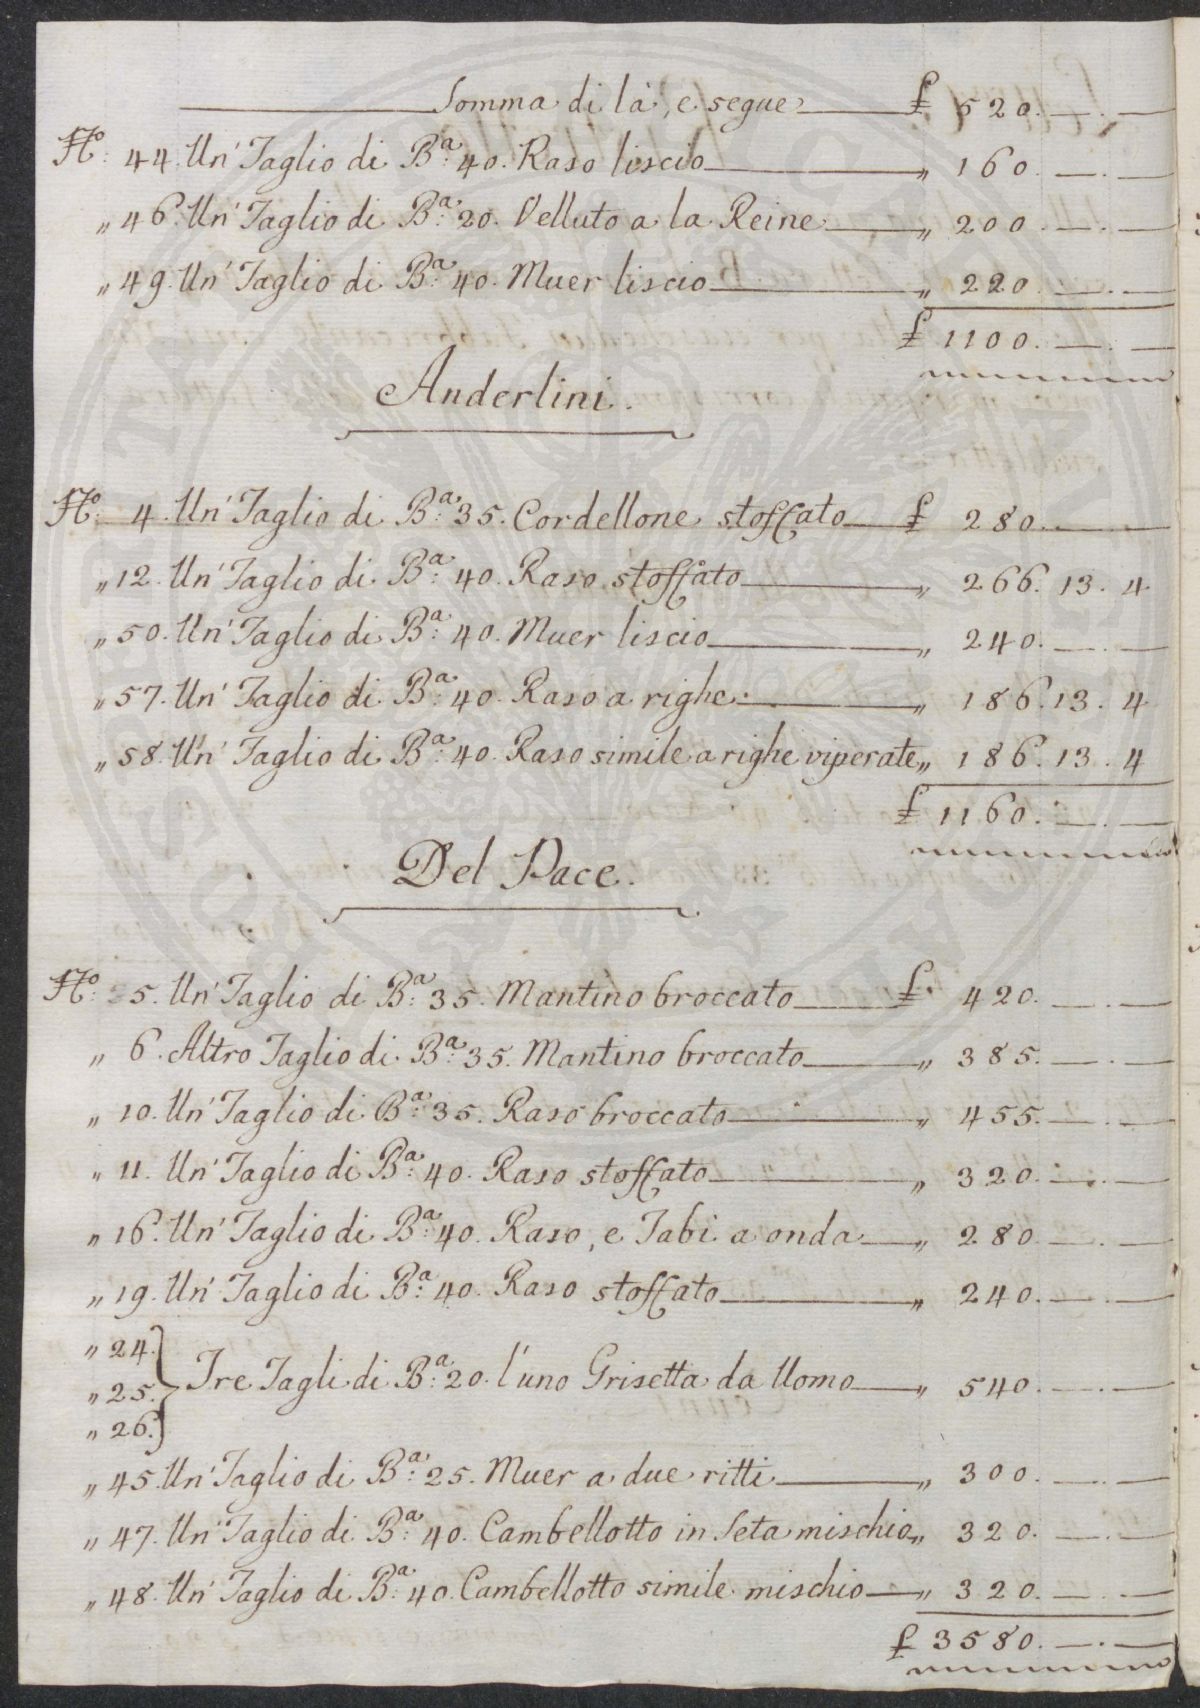 Somma di là, e segue £ 520. —. —
No: 44. Un' Taglio di Ba: 40. Raso liscio „ 160. —. —
„ 46. Un' Taglio di Ba: 20. Velluto a la Reine „ 200. —. —
„ 49. Un' Taglio di Ba: 40. Muer liscio „ 220. —. —
£ 1100. —. —
Anderlini.
No: 4. Un' Taglio di Ba: 35. Cordellone stoffato £ 280. —
„ 12. Un' Taglio di Ba: 40. Raso stoffato „ 266. 13. 4
„ 50. Un' Taglio di Ba: 40. Muer liscio „ 240. —. —
„ 57. Un' Taglio di Ba: 40. Raso a righe „ 186. 13. 4
„ 58. Un' Taglio di Ba: 40. Raso simile a righe viperate „ 186. 13. 4
£ 1160. —. —
Del Pace.
No: 5. Un' Taglio di Ba: 35. Mantino broccato £ 420. —. —
„ 6. Altro Taglio di Ba: 35. Mantino broccato „ 385. —. —
„ 10. Un' Taglio di Ba: 35. Raso broccato „ 455. —. —
„ 11. Un' Taglio di Ba: 40. Raso stoffato „ 320. —. —
„ 16. Un' Taglio di Ba: 40. Raso, e Tabi a onda „ 280. —. —
„ 19. Un' Taglio di Ba: 40. Raso stoffato „ 240. —. —
„ 24.
„ 25. Tre Tagli di Ba: 20. l'uno Grisetta da Uomo „ 540. —. —
„ 26.
„ 45. Un' Taglio di Ba: 25. Muer a due ritti „ 300. —. —
„ 47. Un' Taglio di Ba: 40. Cambellotto in Seta mischio „ 320. —. —
„ 48. Un' Taglio di Ba: 40. Cambellotto simile mischio „ 320. —. —
£ 3580. —. —